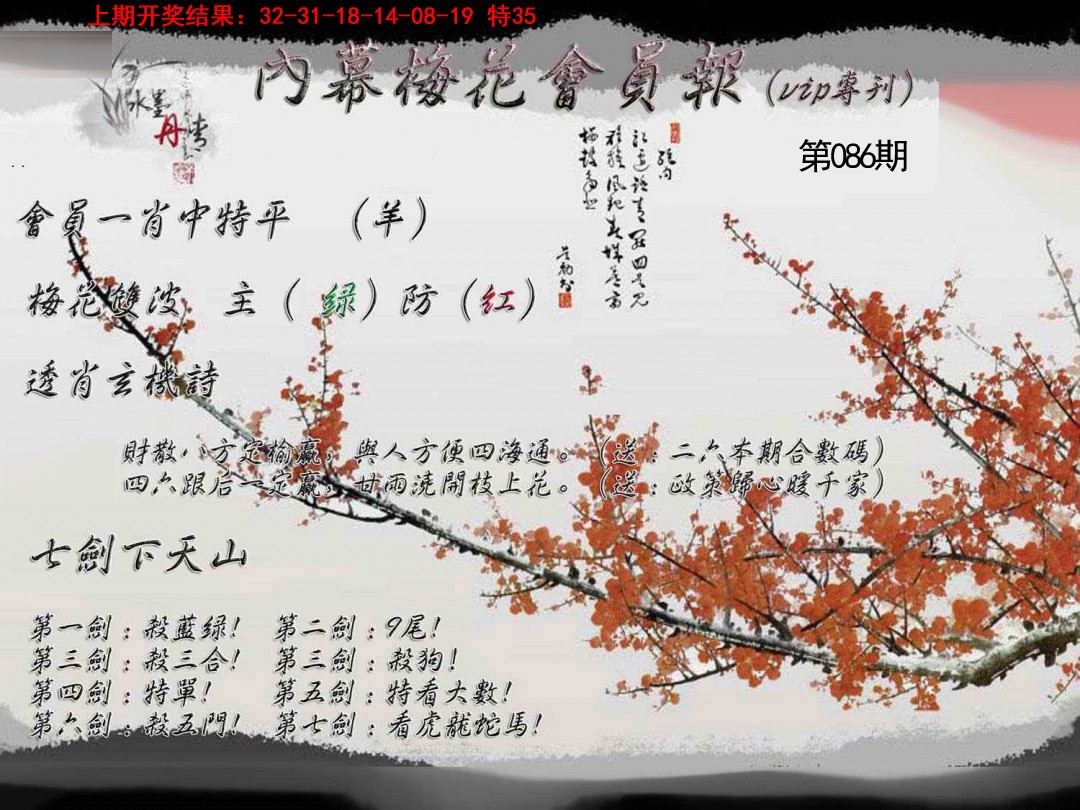 上期开奖结果：32-31-18-14-08-19 特35
內幕梅花會員報(vip專刊)
水墨
丹青
第086期
會員一肖中特平 （羊）
梅花雙波 主（绿）防（红）
透肖玄機詩
財散八方定榆赢，與人方便四海通。（送：二六本期合數碼）
四六跟后一定赢，甘雨澆開枝上花。（送：政策歸心暖千家）
七劍下天山
第一劍：殺藍绿！ 第二劍：9尾！
第三劍：殺三合！ 第三劍：殺狗！
第四劍：特單！ 第五劍：特看大數！
第六劍：殺五門！ 第七劍：看虎龍蛇馬！